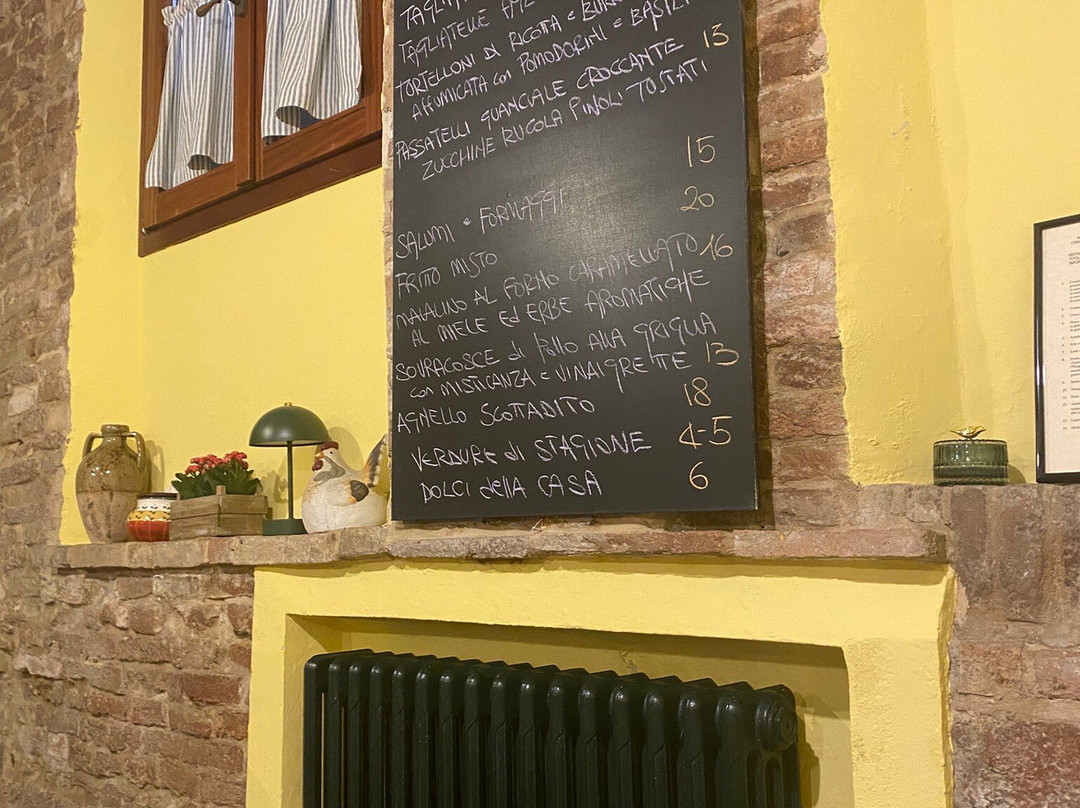 TAGLIATELLE
TORTELLONI di RICOTTA e
AFFUMICATA con POMODORINI e BASILI
PASSATELLI GUANCIALE CROCCANTE 13
ZUCCHINE RUCOLA PINOLI TOSTATI
SALUMI e FORMAGGI 15
FRITTO MISTO 20
MAIALINO AL FORNO CARAMELLATO 16
AL MIELE ed ERBE AROMATICHE
SOVRACOSCE di POLLO ALLA GRIGLIA
con MISTICANZA e VINAIGRETTE 13
AGNELLO SCOTTADITO 18
VERDURE di STAGIONE 4-5
DOLCI della CASA 6